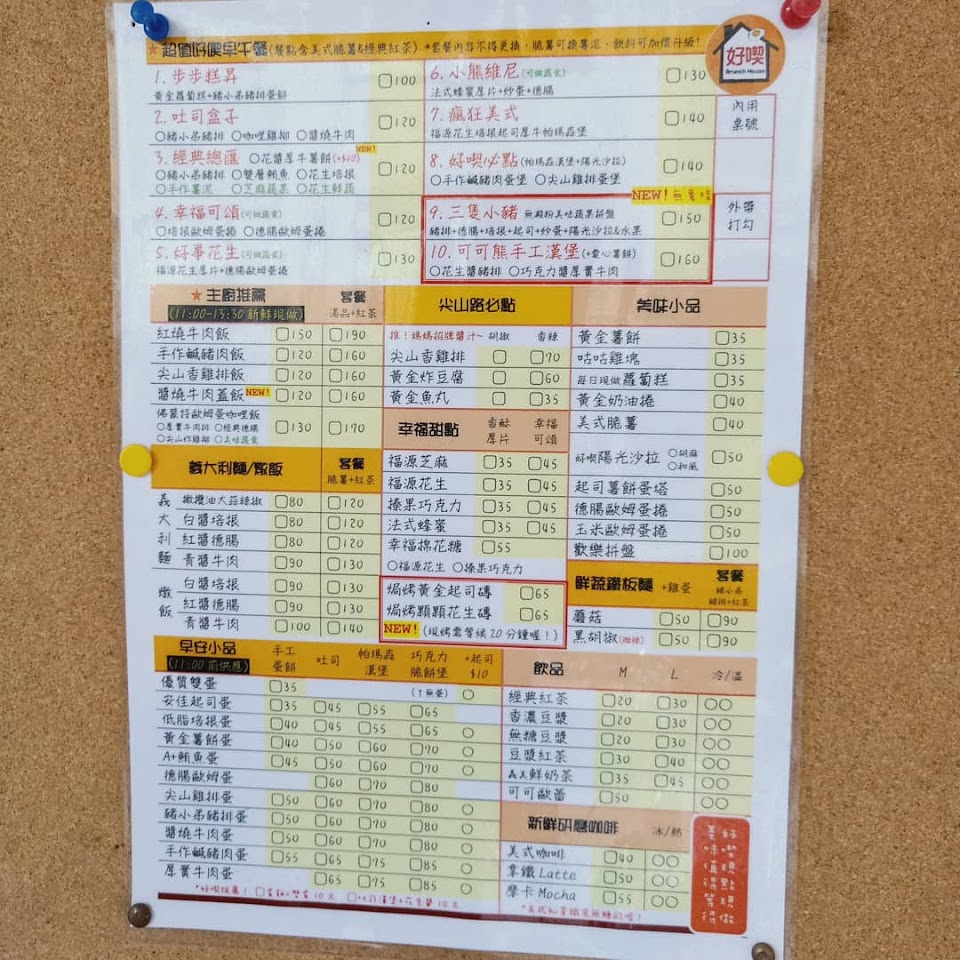 ★超值好喫早午餐(餐點含美式脆薯&經典紅茶) *套餐內容不得更換，脆薯可換薯泥、飲料可加價升級!
好喫
Brunch House
1. 步步糕昇 □100
黃金蘿蔔糕+豬小弟豬排蛋餅
2. 吐司盒子 □120
○豬小弟豬排 ○咖哩雞柳 ○醬燒牛肉
3. 經典總匯 ○花醬厚牛薯餅(+$40) NEW! □120
○豬小弟豬排 ○雙層鮪魚 ○花生培根
○手作薯泥 ○芝麻蔬果 ○花生鮮蔬
4. 幸福可頌(可做蔬食) □120
○培根歐姆蛋捲 ○德腸歐姆蛋捲
5. 好事花生(可做蔬食) □130
福源花生厚片+德腸歐姆蛋捲
6. 小熊維尼(可做蔬食) □130
法式蜂蜜厚片+炒蛋+德腸
7. 瘋狂美式 □140
福源花生培根起司厚牛帕瑪森堡
8. 好喫必點(帕瑪森漢堡+陽光沙拉) □140
○手作鹹豬肉蛋堡 ○尖山雞排蛋堡
NEW!
9. 三隻小豬 無澱粉美味蔬果拼盤 □150
豬排+德腸+培根+起司+炒蛋+陽光沙拉&水果
10. 可可熊手工漢堡(+愛心薯餅) □160
○花生醬豬排 ○巧克力醬厚實牛肉
內用
桌號
外帶
打勾
★主廚推薦 套餐
(11:00-13:30 新鮮現做) 湯品+紅茶
紅燒牛肉飯 □150 □190
手作鹹豬肉飯 □120 □160
尖山香雞排飯 □120 □160
醬燒牛肉蓋飯 NEW! □120 □160
佛蒙特歐姆蛋咖哩飯 □130 □170
○厚實牛肉排 ○經典德腸
○尖山炸雞排 ○美味蔬食
義大利麵/燉飯 套餐
脆薯+紅茶
義大利麵
橄欖油大蒜辣椒 □80 □120
白醬培根 □80 □120
紅醬德腸 □80 □120
青醬牛肉 □90 □130
燉飯
白醬培根 □90 □130
紅醬德腸 □90 □130
青醬牛肉 □100 □140
尖山路必點
推!媽媽招牌醬汁~ 胡椒 香辣
尖山香雞排 □ □70
黃金炸豆腐 □ □60
黃金魚丸 □ □35
幸福甜點 香酥厚片 幸福可頌
福源芝麻 □35 □45
福源花生 □35 □45
榛果巧克力 □35 □45
法式蜂蜜 □35 □45
幸福棉花糖 □55
○福源花生 ○榛果巧克力
焗烤黃金起司磚 □65
焗烤顆顆花生磚 □65
NEW! (現烤需等候20分鐘喔!)
美味小品
黃金薯餅 □35
咕咕雞塊 □35
每日現做蘿蔔糕 □35
黃金奶油捲 □40
美式脆薯 □40
好喫陽光沙拉 ○胡麻 ○和風 □50
起司薯餅蛋塔 □50
德腸歐姆蛋捲 □50
玉米歐姆蛋捲 □50
歡樂拼盤 □100
鮮蔬鐵板麵 +雞蛋 套餐
豬小弟
豬排+紅茶
蘑菇 □50 □90
黑胡椒(微辣) □50 □90
早安小品
(11:00 前供應) 手工蛋餅 吐司 帕瑪森漢堡 巧克力脆餅堡 +起司$10
優質雙蛋 □35 (1無蛋) ○
安佳起司蛋 □35 □45 □55 □65
低脂培根蛋 □40 □45 □55 □65 ○
黃金薯餅蛋 □40 □50 □60 □70 ○
A+鮪魚蛋 □45 □50 □60 □70 ○
德腸歐姆蛋 □60 □70 □80
尖山雞排蛋 □50 □60 □70 □80 ○
豬小弟豬排蛋 □50 □60 □70 □80 ○
醬燒牛肉蛋 □50 □60 □70 □80 ○
手作鹹豬肉蛋 □55 □65 □75 □85 ○
厚實牛肉蛋 □65 □75 □85 ○
飲品 M L 冷/溫
經典紅茶 □20 □30 ○○
香濃豆漿 □20 □30 ○○
無糖豆漿 □20 □30 ○○
豆漿紅茶 □30 □40 ○○
義美鮮奶茶 □35 □45 ○○
可可歐蕾 □50 ○○
新鮮研磨咖啡 冰/熱
美式咖啡 □40 ○○
拿鐵 Latte □50 ○○
摩卡 Mocha □55 ○○
*美式和拿鐵是無糖的喔!
好喫現點現做
美味值得等待